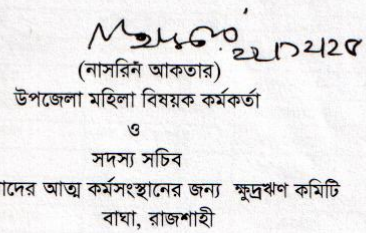 (নাসরিন আকতার)
উপজেলা মহিলা বিষয়ক কর্মকর্তা
ও
সদস্য সচিব
আত্ম কর্মসংস্থানের জন্য ক্ষুদ্রঋণ কমিটি
বাঘা, রাজশাহী